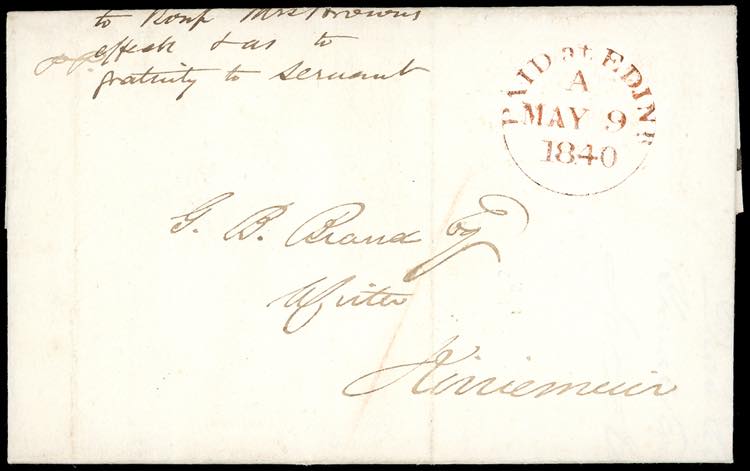 to Roup Mrs Browns
effects & as to
gratuity to servant
PAID at EDINR
A
MAY 9
1840
G. B. Brand Esq
Writer
Kirriemuir